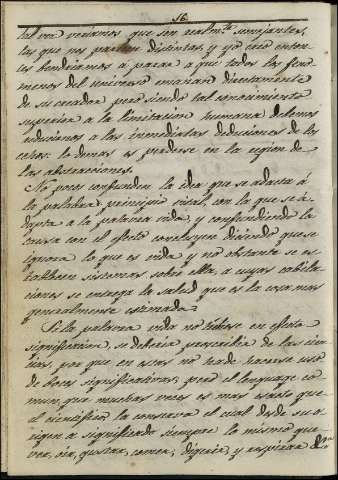 16.
tal vez veriamos que son realmte semejantes,
las que nos parecen distintas, y yo creo enton-
ces vendriamos á parar a que todos los feno-
menos del universo emanan directamente
de su creador pero siendo tal conocimiento
superior a la limitacion humana debemos
reducirnos a las inmediatas deduciones de los
echos: lo demas es perderse en la region de
las abstracciones.
No pocos confunden la idea que se adacta á
la palabra principio vital, con la que se á-
dapta a la palabra vida, y confundiendo la
causa con el efecto concluyen diciendo que se
ignora lo que es vida y no obstante se es-
tablecen sistemas sobre ella, a cuyas cabila-
ciones se entrega la salud que es la cosa mas
generalmente estimada.
Si la palabra vida no tubiese en efecto
significacion, se deberia proscribir de las cien-
cias, por que en estas no hade hacerse uso
de voces significativas; pero el lenguage co-
mun, que muchas veces es mas exacto que
el cientifico la conserva el cual desde su o-
rigen a significado siempre lo mismo que
ver, oir, gustar, comer, digerir y respirar